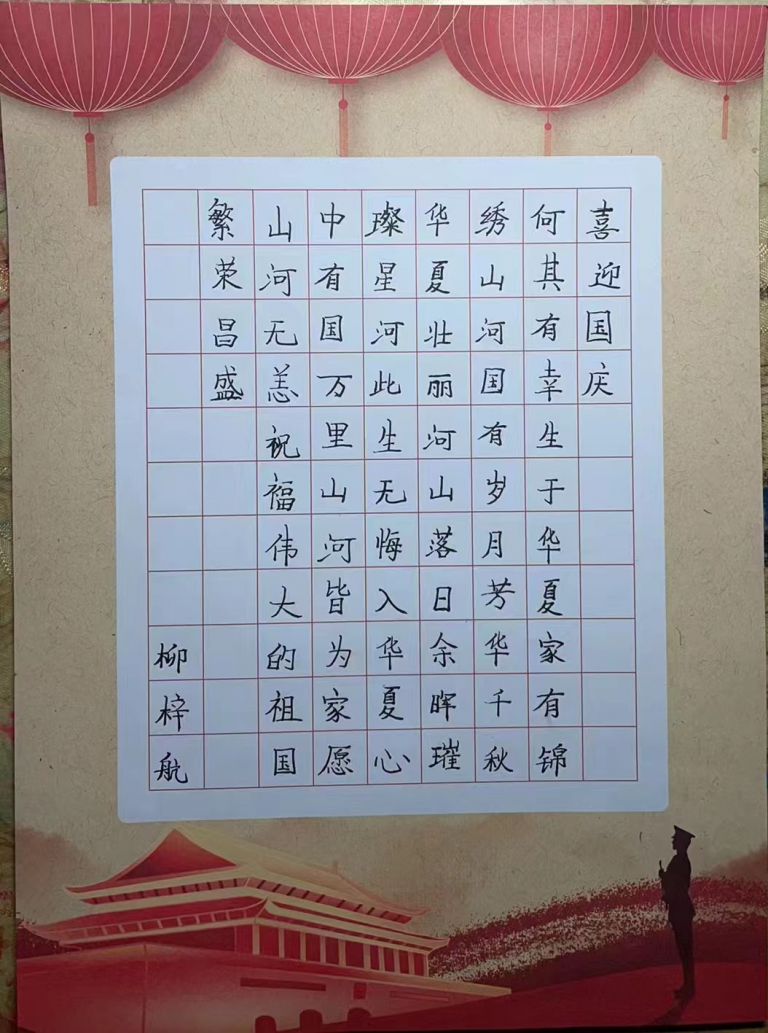 喜迎国庆
何其有幸生于华夏家有锦
绣山河国有岁月芳华千秋
华夏壮丽河山落日余晖璀
璨星河此生无悔入华夏心
中有国万里山河皆为家愿
山河无恙祝福伟大的祖国
繁荣昌盛
柳梓航